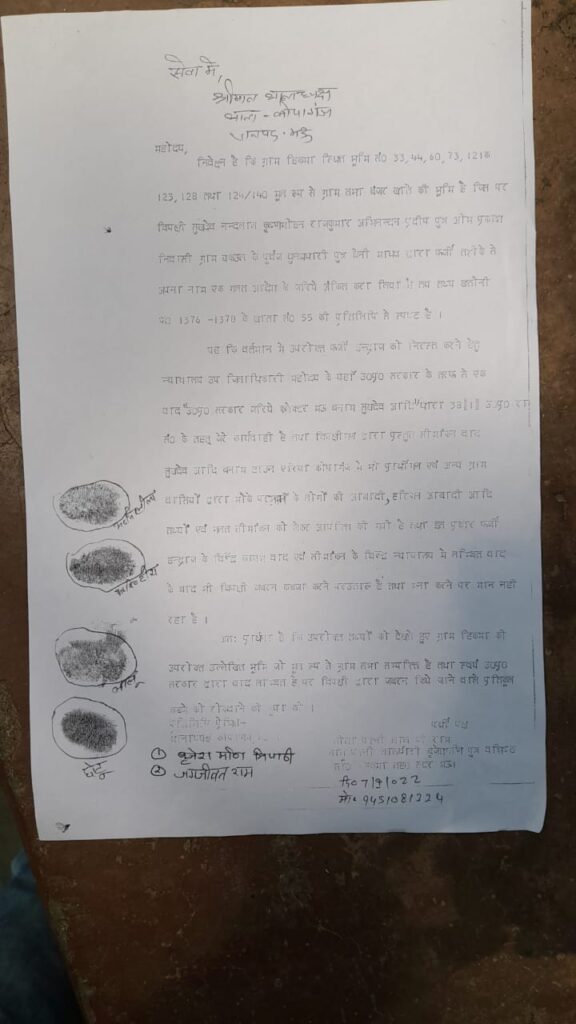 सेवा में,
श्रीमान थानाध्यक्ष
थाना - कोपागंज
जनपद - मऊ
महोदय,
निवेदन है कि ग्राम स्थित भूमि सं0 33, 44, 60, 73, 121
123, 128 तथा 124/140 मूल रूप से ग्राम सभा बंजर खाते की भूमि है जिस पर
विपक्षी सुखदेव नन्दलाल कृष्णमोहन राजकुमार अभिनन्दन प्रदीप पुत्र ओम प्रकाश
निवासी ग्राम के पूर्वज पुत्र बेनी माधव द्वारा फर्जी तरीके से
अपना नाम एक गलत आदेश के जरिये अंकित करा लिया है तथ्य खतौनी
1376 -1378 के खाता सं0 55 की प्रतिलिपि से स्पष्ट है ।
यह कि वर्तमान में उपरोक्त फर्जी इन्द्राज को निरस्त करने हेतु
न्यायालय उप जिलाधिकारी महोदय के यहाँ उ0प्र0 सरकार के तरफ से एक
वाद "उ0प्र0 सरकार जरिये कलेक्टर मऊ बनाम सुखदेव आदि" धारा 38
सं0 के तहत कार्यवाही है तथा विपक्षीगण द्वारा प्रस्तुत सीमांकन वाद
सुखदेव आदि बनाम में भी एवं अन्य ग्राम
वासियों द्वारा मौके पर के लोगों की आबादी, हरिजन आबादी आदि
तथ्यों एवं गलत सीमांकन को लेकर आपत्ति की गयी है तथा इस प्रकार फर्जी
इन्द्राज के विरूद्ध वाद एवं सीमांकन के विरूद्ध न्यायालय में लम्बित वाद
के बाद भी विपक्षी जबरन कब्जा करने पर है तथा मना करने पर मान नही
रहा है ।
अतः प्रार्थना है कि उपरोक्त तथ्यों को देखते हुए ग्राम की
उपरोक्त उल्लेखित भूमि जो मूल रूप से ग्राम सभा सम्पत्ति है तथा स्वयं उ0प्र0
सरकार द्वारा वाद लम्बित है पर विपक्षी द्वारा जबरन किये जाने वाले
कब्जे को की कृपा करें ।
लालू
① बृजेश मणि त्रिपाठी
② जगजीवन राम
दि0 7/9/022
मो0 9451081224